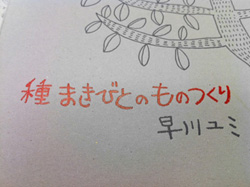 種まきびとのものつくり
早川ユミ